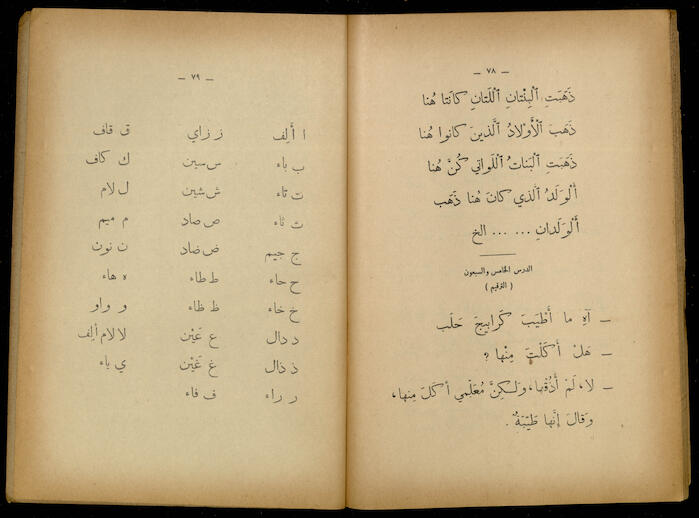 — ٧٨ —
ذَهَبَتِ ٱلْبِنْتَانِ ٱللَّتَانِ كَانَتَا هُنَا
ذَهَبَ ٱلْأَوْلَادُ ٱلَّذِينَ كانوا هُنا
ذَهَبَتِ ٱلْبَنَاتُ ٱللَّوَاتِي كُنَّ هُنا
أَلْوَلَدُ ٱلَّذِي كَانَ هُنا ذَهَب
أَلْوَلَدَانِ ... ... الخ
الدرس الخامس والسبعون
( الترقيم )
— آهِ ما أَطْيَبَ كَرابيجَ حَلَب
— هَلْ أَكَلْتَ مِنْها ؟
— لا، لَمْ أَذُقْها، ولٰكِنَّ مُعَلِّمي أَكَلَ مِنها،
وَقالَ إِنَّها طَيِّبَةٌ .
— ٧٩ —
ا أَلِف
ب باء
ت تاء
ث ثاء
ج جيم
ح حاء
خ خاء
د دال
ذ ذال
ر راء
ز زاي
س سين
ش شين
ص صاد
ض ضاد
ط طاء
ظ ظاء
ع عَيْن
غ غَيْن
ف فاء
ق قاف
ك كاف
ل لام
م ميم
ن نون
ه هاء
و واو
لا لام أَلِف
ي ياء